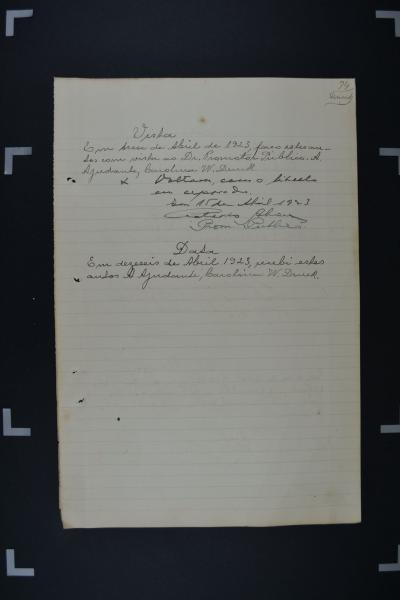 74
Druck
Vista
Em treze de Abril de 1923, faço estes au-
tos com vista ao Dr. Promotor Publico. A
Ajudante, Carolina W. Druck
Voltam, com o libello
em separado.
Em 15 de Abril 1923
Prom. Publico
Data
Em dezeseis de Abril 1923, recebi estes
autos A Ajudante, Carolina W. Druck.